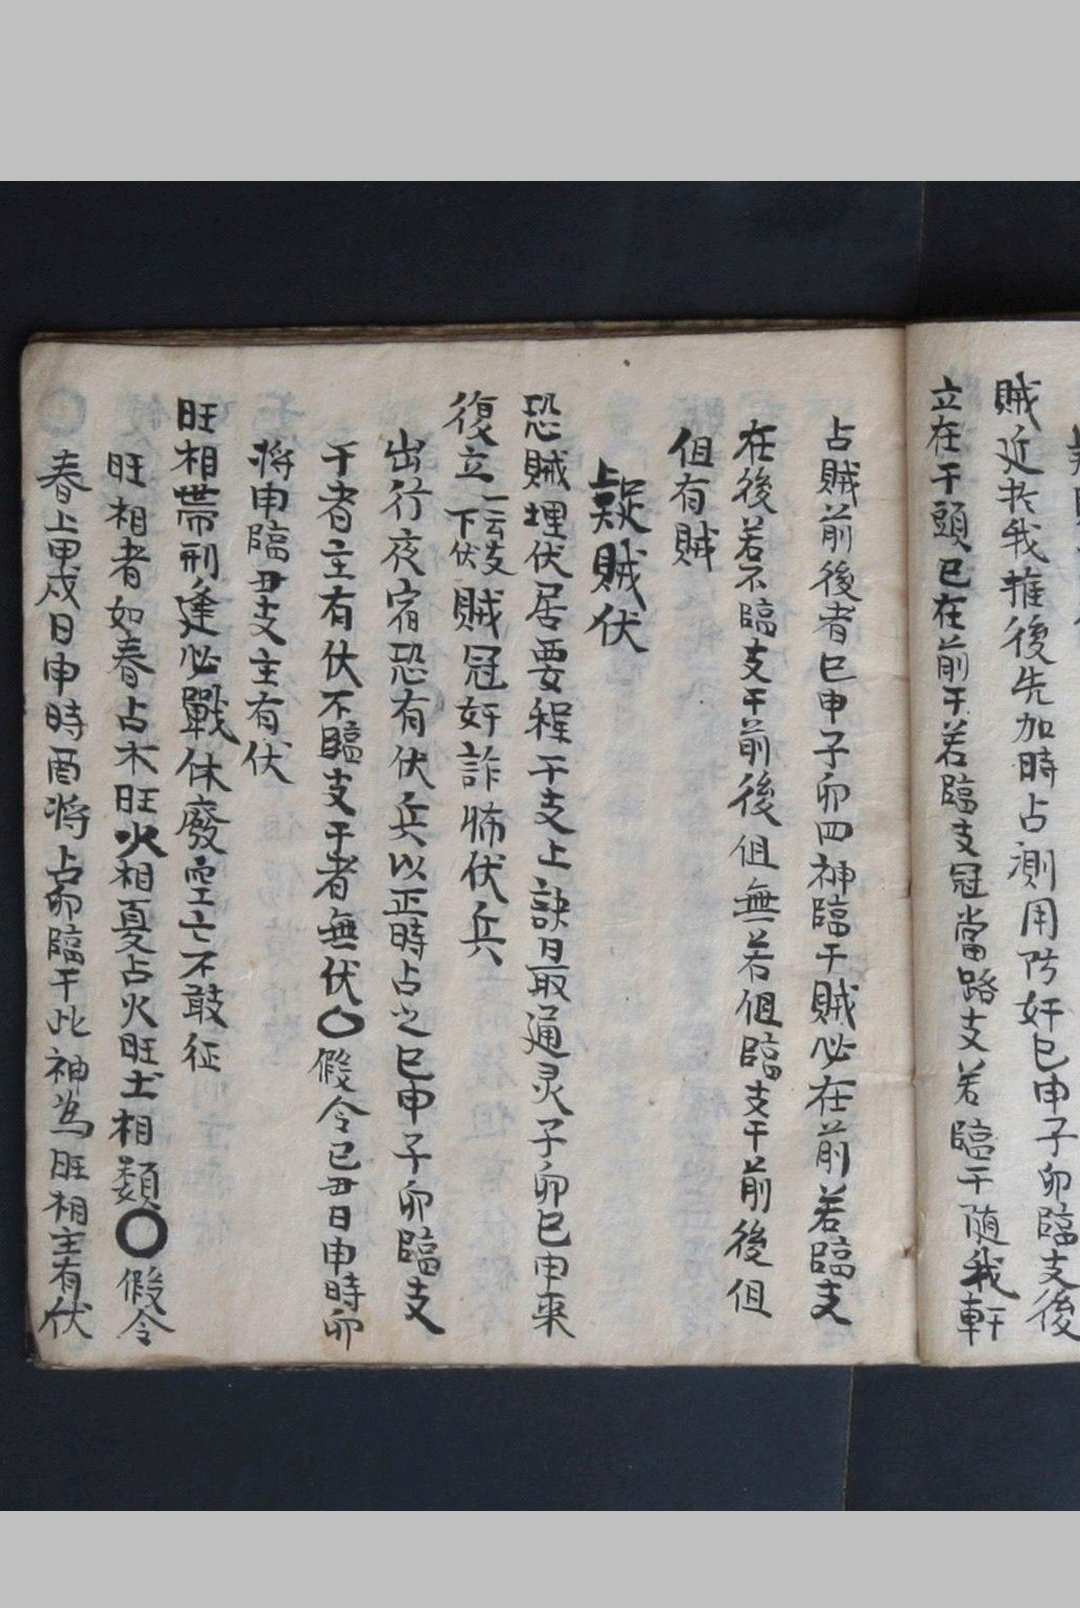 賊近於我推後先加時占測用防奸巳申子卯臨支後
立在干頭巳在前干若臨支冠當路支若臨干隨我軒
占賊前後者巳申子卯四神臨干賊必在前若臨支
在後若不臨支干前後伹無若伹臨支干前後伹
伹有賊
疑賊伏
恐賊埋伏居要程干支上訣日最通灵子卯巳申来
復立一云支下伏賊冠奸詐怖伏兵
出行夜宿恐有伏兵以正時占之巳申子卯臨支
干者主有伏不臨支干者無伏〇假令己丑日申時卯
將申臨丑支主有伏
旺相帶刑逢必戰休廢空亡不敢征
旺相者如春占木旺火相夏占火旺土相類〇假令
春上甲戍日申時酉將占卯臨干此神為旺相主有伏